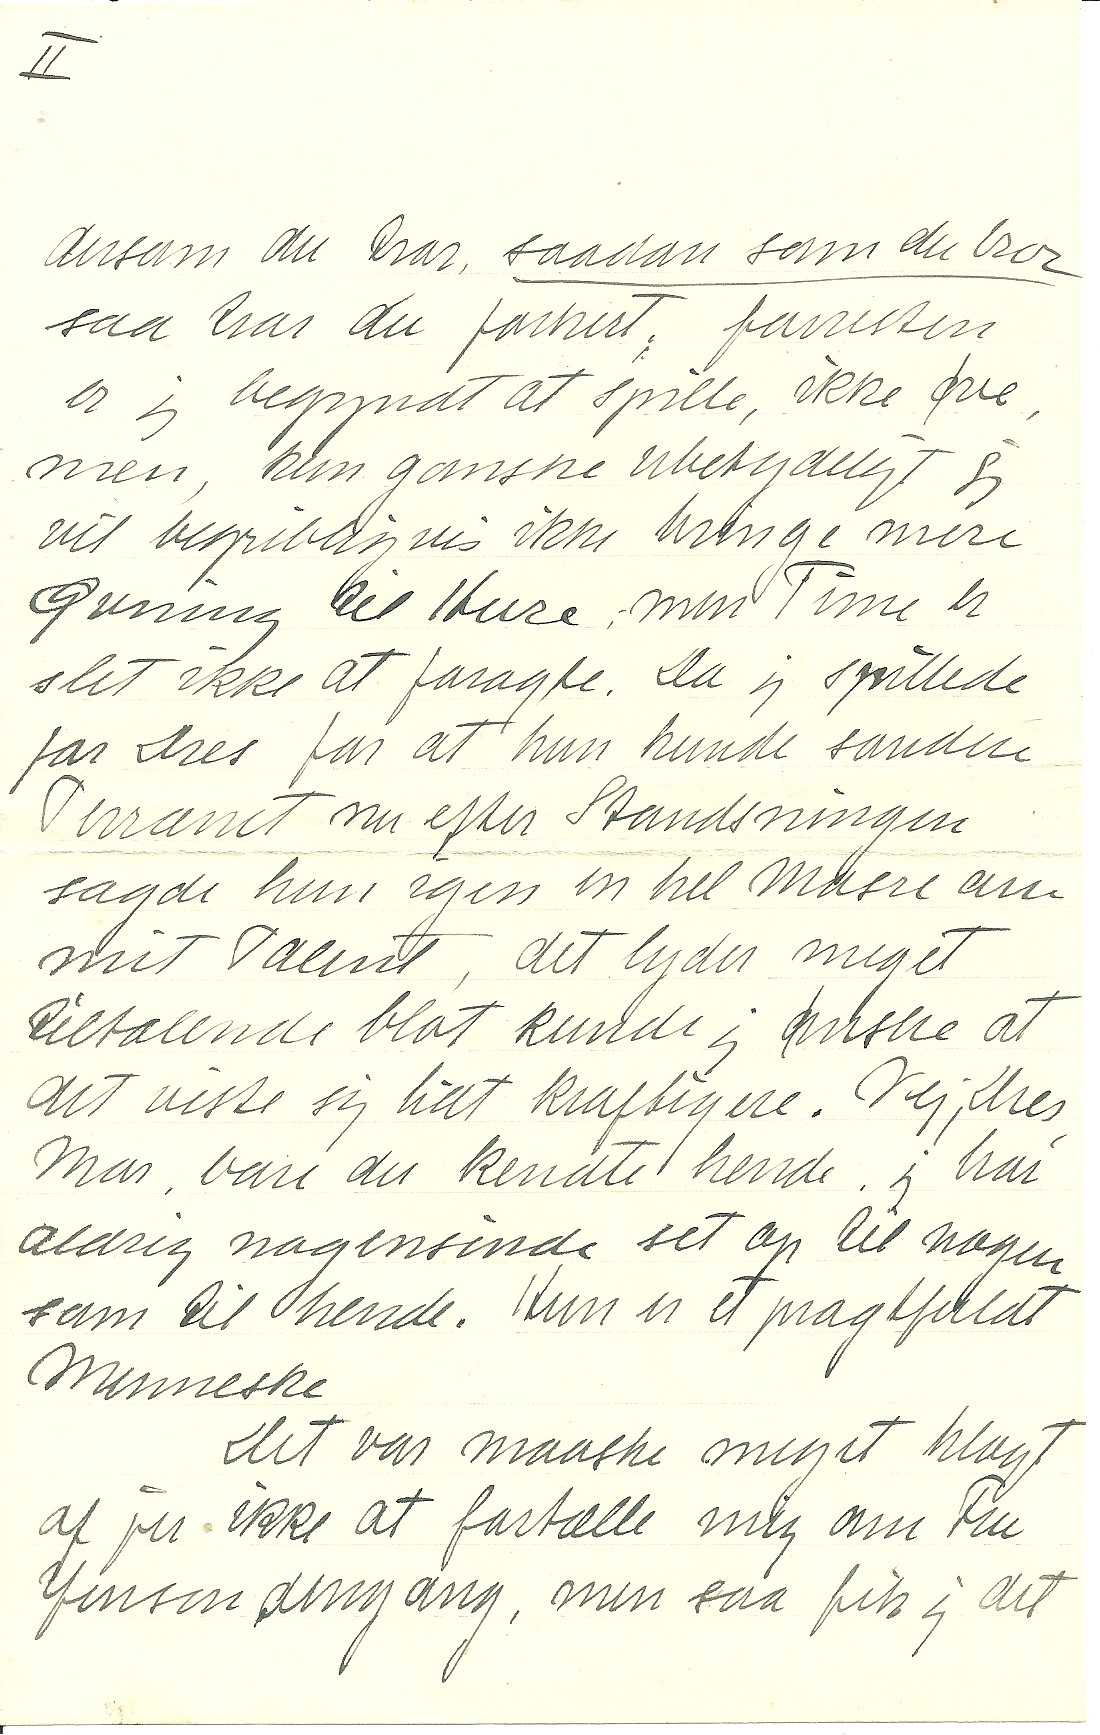 II
dersom du tror, saadan som du tror
saa tror du forkert; forresten
er jeg begyndt at spille, ikke øve,
men, kun ganske ubetydeligt jeg
vil begribeligvis ikke bringe mere
Øvning til Huse, men Time er
slet ikke at foragte. Da jeg spillede
for Dres for at hun kunde sondere
Terrænet nu efter Standsningen
sagde hun igen en hel Masse om
mit Talent, det lyder meget
tiltalende blot kunde jeg ønske at
det viste sig lidt kraftigere. Nej, Dres
Mor, bare du kendte hende. jeg har
aldrig nogensinde set op til nogen
som til hende. Hun er et pragtfuldt
Menneske
Det var maaske meget klogt
af jer ikke at fortælle mig om Fru
Jensen dengang, men saa fik jeg det